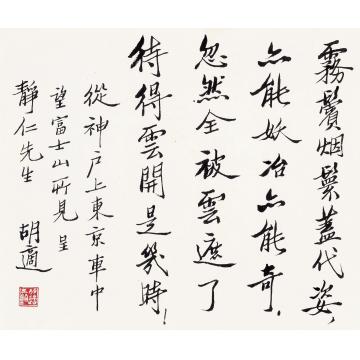 霧鬢烟鬟蓋代姿，
亦能妖冶亦能奇，
忽然全被雲遮了
待得雲開是幾時！
從神户上東京車中
望富士山所見呈
靜仁先生
胡適